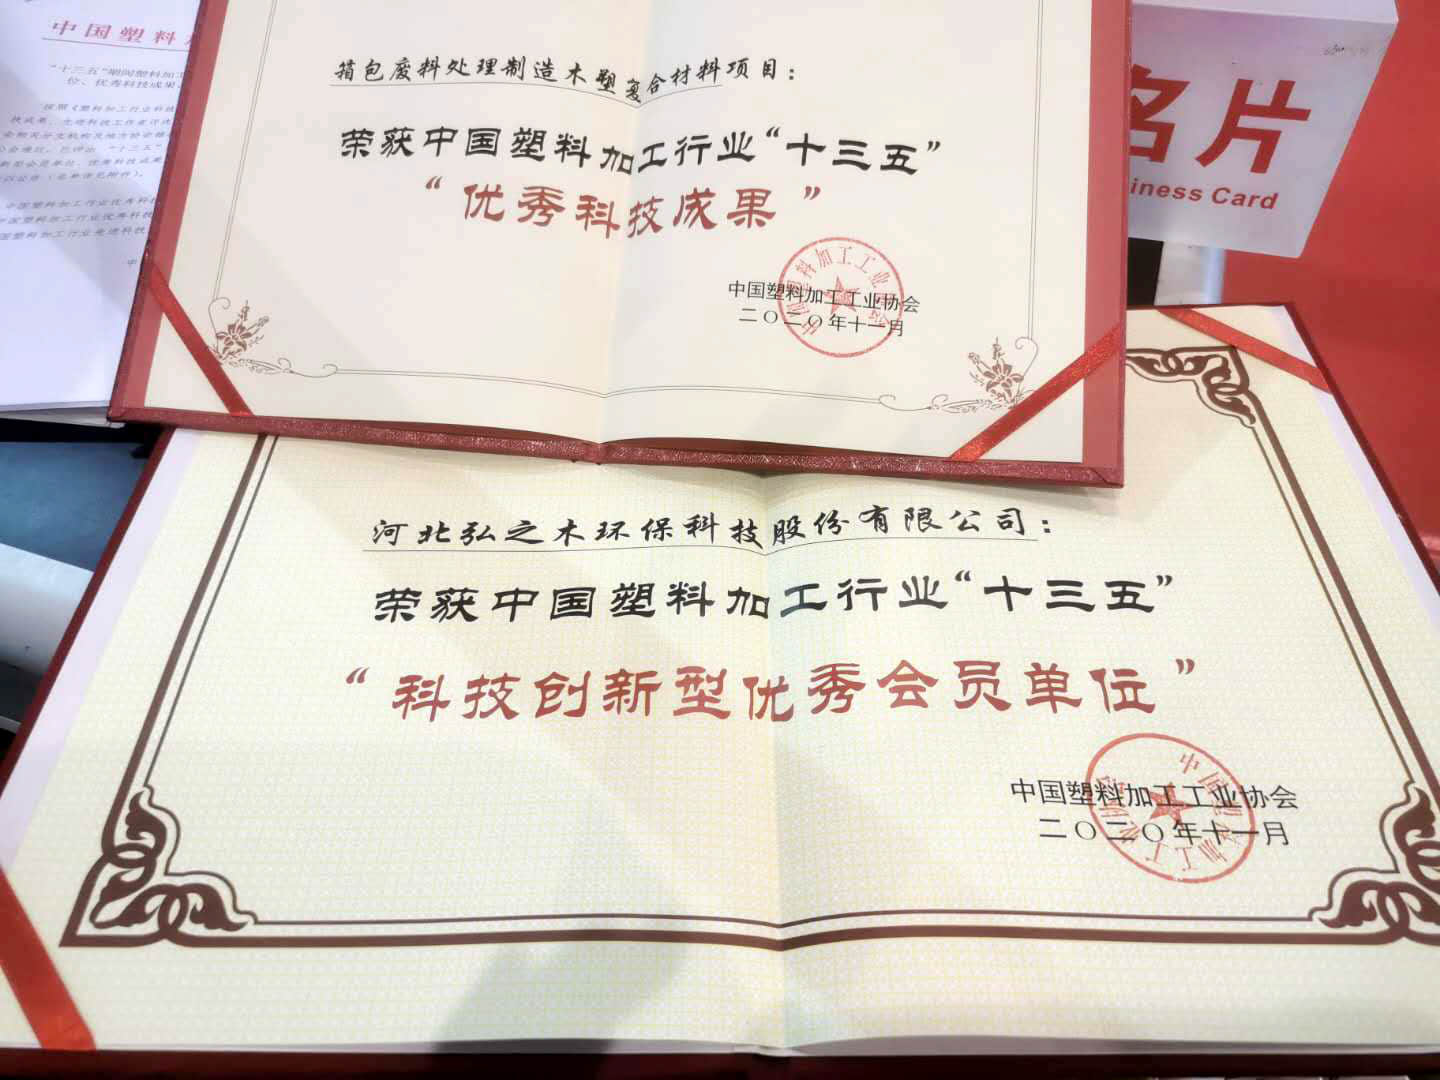 中国塑料
"十三五"期间塑料加工
位、优秀科技成果
按照《塑料加工行业科技
箱包废料处理制造木塑复合材料项目：
荣获中国塑料加工行业“十三五”
“优秀科技成果”
中国塑料加工工业协会
二〇二〇年十一月
名片
iness Card
河北弘之木环保科技股份有限公司：
荣获中国塑料加工行业“十三五”
“科技创新型优秀会员单位”
中国塑料加工工业协会
二〇二〇年十一月